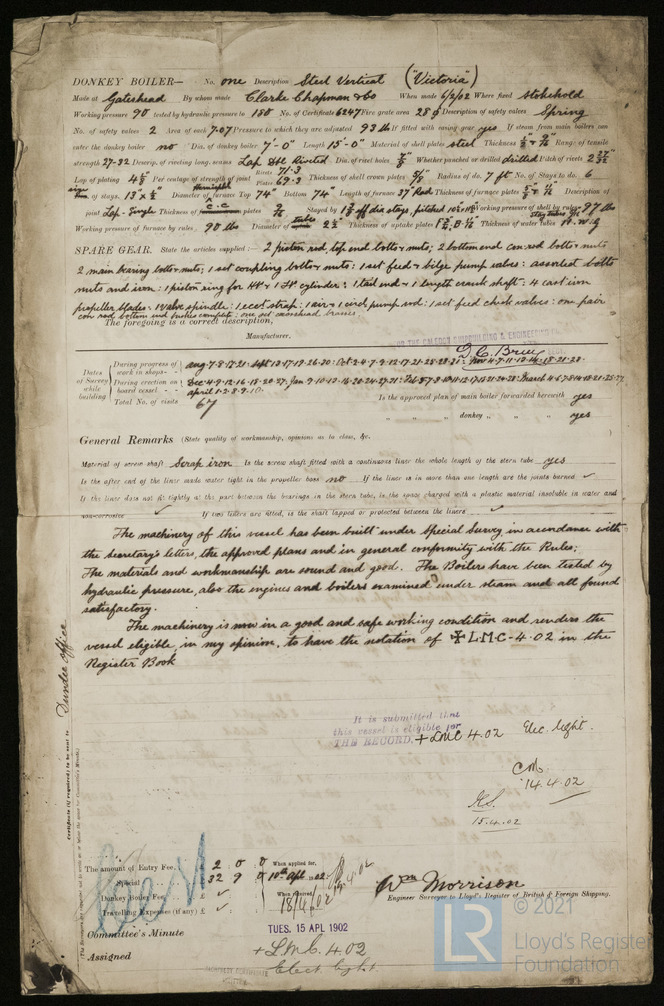 DONKEY BOILER— No. one Description Steel Vertical ("Victoria")
Made at Gateshead By whom made Clarke Chapman & Co When made 6/2/02 Where fixed Stokehold
Working pressure 90 tested by hydraulic pressure to 180 No. of Certificate 6247 Fire grate area 28 Description of safety valves Spring
No. of safety valves 2 Area of each 7.07 Pressure to which they are adjusted 93 lb If fitted with easing gear yes If steam from main boilers can
enter the donkey boiler no Dia. of donkey boiler 7'-0" Length 15'-0" Material of shell plates steel Thickness Range of tensile
strength 27-32 Descrip. of riveting long. seams Lap Dble Riveted Dia. of rivet holes Whether punched or drilled drilled Pitch of rivets
Lap of plating Per centage of strength of joint Rivets 71.3 Plates 69.3 Thickness of shell crown plates Radius of do. 7 ft No. of Stays to do. 6
size of stays. Diameter of furnace Top 74" Bottom 74" Length of furnace 37 Rad Thickness of furnace plates Description of
joint Lap - Single Thickness of plates Stayed by dia stays, pitched Working pressure of shell by rules 97 lbs
Working pressure of furnace by rules 90 lbs Diameter of tubes 2½ Thickness of uptake plates Thickness of water tubes
SPARE GEAR. State the articles supplied:— 2 piston rod, top end bolts & nuts; 2 bottom end con: rod bolts & nuts
2 main bearing bolts & nuts; 1 set coupling bolts & nuts: 1 set feed & bilge pump valves: assorted bolts
nuts and iron: 1 piston ring for HP & 1 LP cylinder: 1 tail end & 1 length crank shaft: 4 cast iron
propeller blades: 1 valve spindle: 1 eccet strap: 1 air & 1 circg pump rod: 1 set feed check valves: one pair
con rod bottom end brasses complete: one set crosshead brasses.
The foregoing is a correct description,
Manufacturer.
Dates of Survey while building
During progress of work in shops-- Aug 7-8-17-21: Sept 13-17-19-26-30: Oct 2-4-7-9-12-17-21-25-28-31: Nov 4-7-11-13-14-18-21-28
During erection on board vessel--- Dec 4-9-12-16-18-20-27 Jan 9-10-13-16-20-24-27-31: March 4-6-7-8-14-18-21-25-27
April 1-2-8-9-10
Total No. of visits 67
Is the approved plan of main boiler forwarded herewith yes
" " " donkey " " " yes
General Remarks (State quality of workmanship, opinions as to class, &c.
Material of screw shaft Scrap iron Is the screw shaft fitted with a continuous liner the whole length of the stern tube yes
Is the after end of the liner made water tight in the propeller boss no If the liner is in more than one length are the joints burned ✓
If the liner does not fit tightly at the part between the bearings in the stern tube, is the space charged with a plastic material insoluble in water and
non-corrosive ✓ If two liners are fitted, is the shaft lapped or protected between the liners ✓
The machinery of this vessel has been built under Special Survey in accordance with
the Secretary's letters, the approved plans and in general conformity with the Rules;
The materials and workmanship are sound and good. The Boilers have been tested by
hydraulic pressure, also the engines and boilers examined under steam and all found
satisfactory.
The machinery is now in a good and safe working condition and renders the
vessel eligible, in my opinion, to have the notation of ✠ L.M.C-4.02 in the
Register Book
Dundee Office
Certificate (if required) to be sent to
It is submitted that
this vessel is eligible for
THE RECORD. + LMC 4.02 Elec. light.
14.4.02
15.4.02
The amount of Entry Fee.. £ 2 : 0 : 0 When applied for,
Special £ 32 : 9 : 0 10th Apl 1902
Donkey Boiler Fee £ ✓ When received,
Travelling Expenses (if any) £ ✓ 18/4/02
Wm Morrison
Engineer Surveyor to Lloyd's Register of British & Foreign Shipping.
Committee's Minute TUES. 15 APL 1902
Assigned + L.M.C. 4.02
Elect light
© 2021
LR Lloyd's Register
Foundation